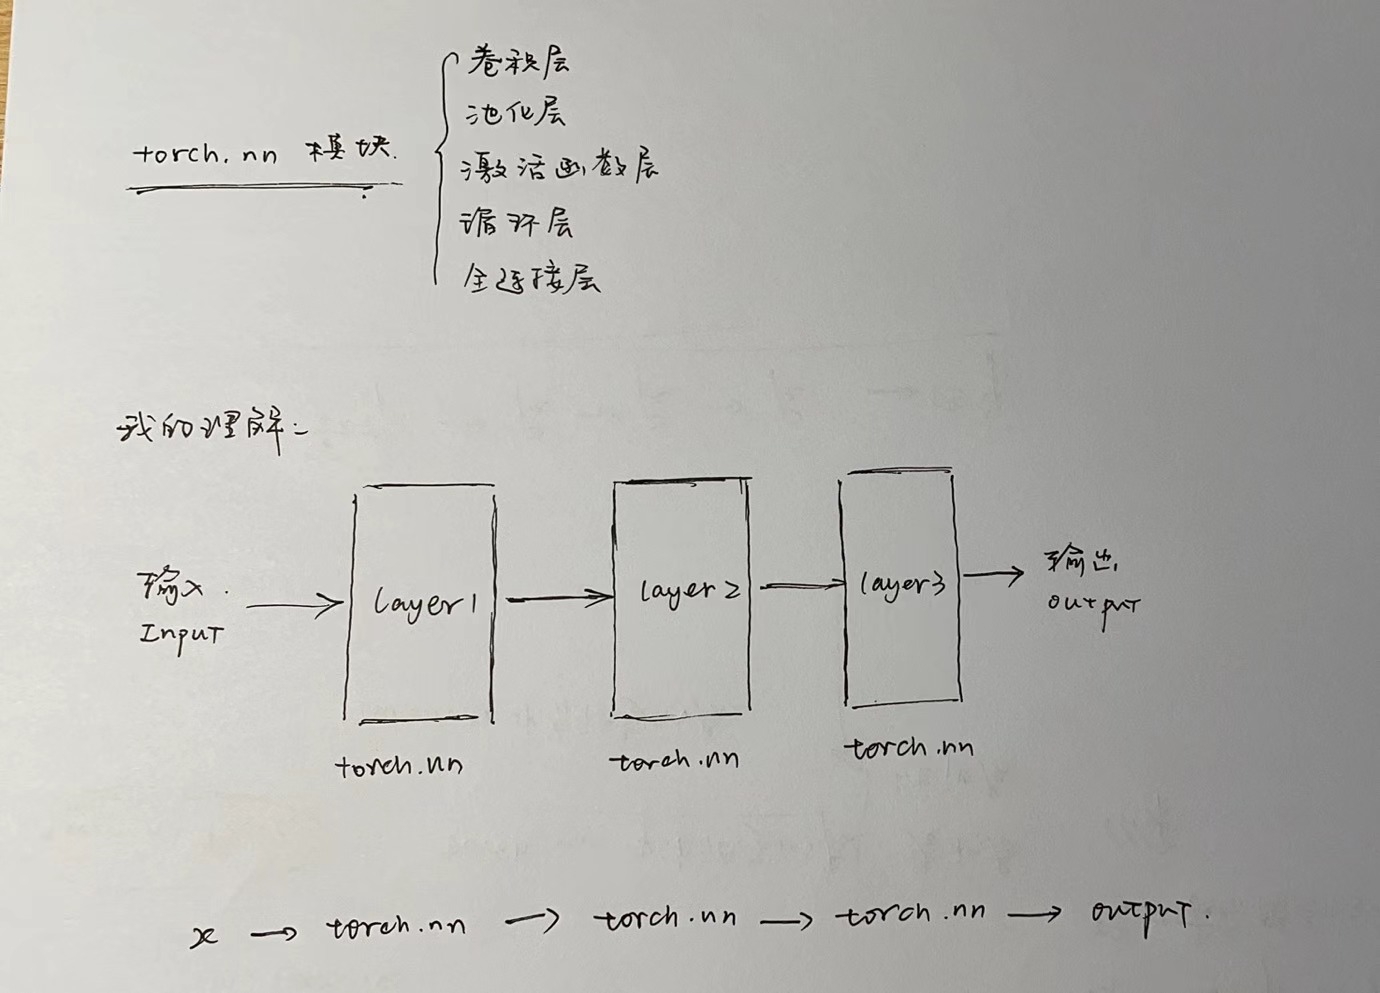 torch.nn 模块.
卷积层
池化层
激活函数层
循环层
全连接层
我的理解:
输入.
Input
layer1
layer2
layer3
输出
output
torch.nn
torch.nn
torch.nn
x → torch.nn → torch.nn → torch.nn → output.